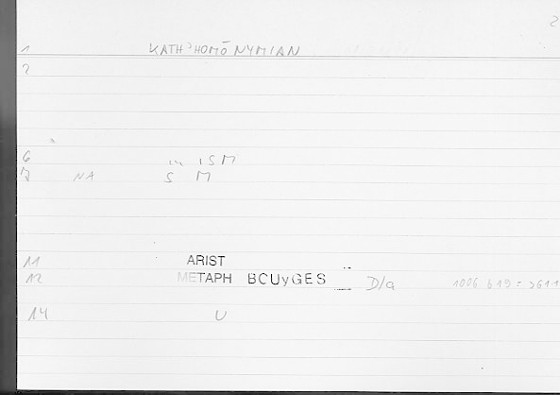 2
1 KATH᾽HOMŌNYMIAN
2
6 in ISM
7 NA S M
11 ARIST
12 METAPH BOUyGES D/a 1006 b 19 = 3611
14 U